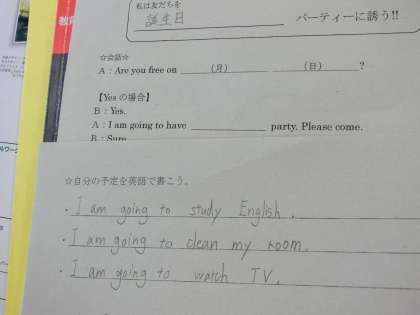 教
私は友だちを
誕生日
パーティーに誘う!!
☆会話☆
A : Are you free on (月) (日) ?
【Yes の場合】
B : Yes.
A : I am going to have party. Please come.
B : Sure
☆自分の予定を英語で書こう。
・I am going to study English.
・I am going to clean my room.
・I am going to watch TV.